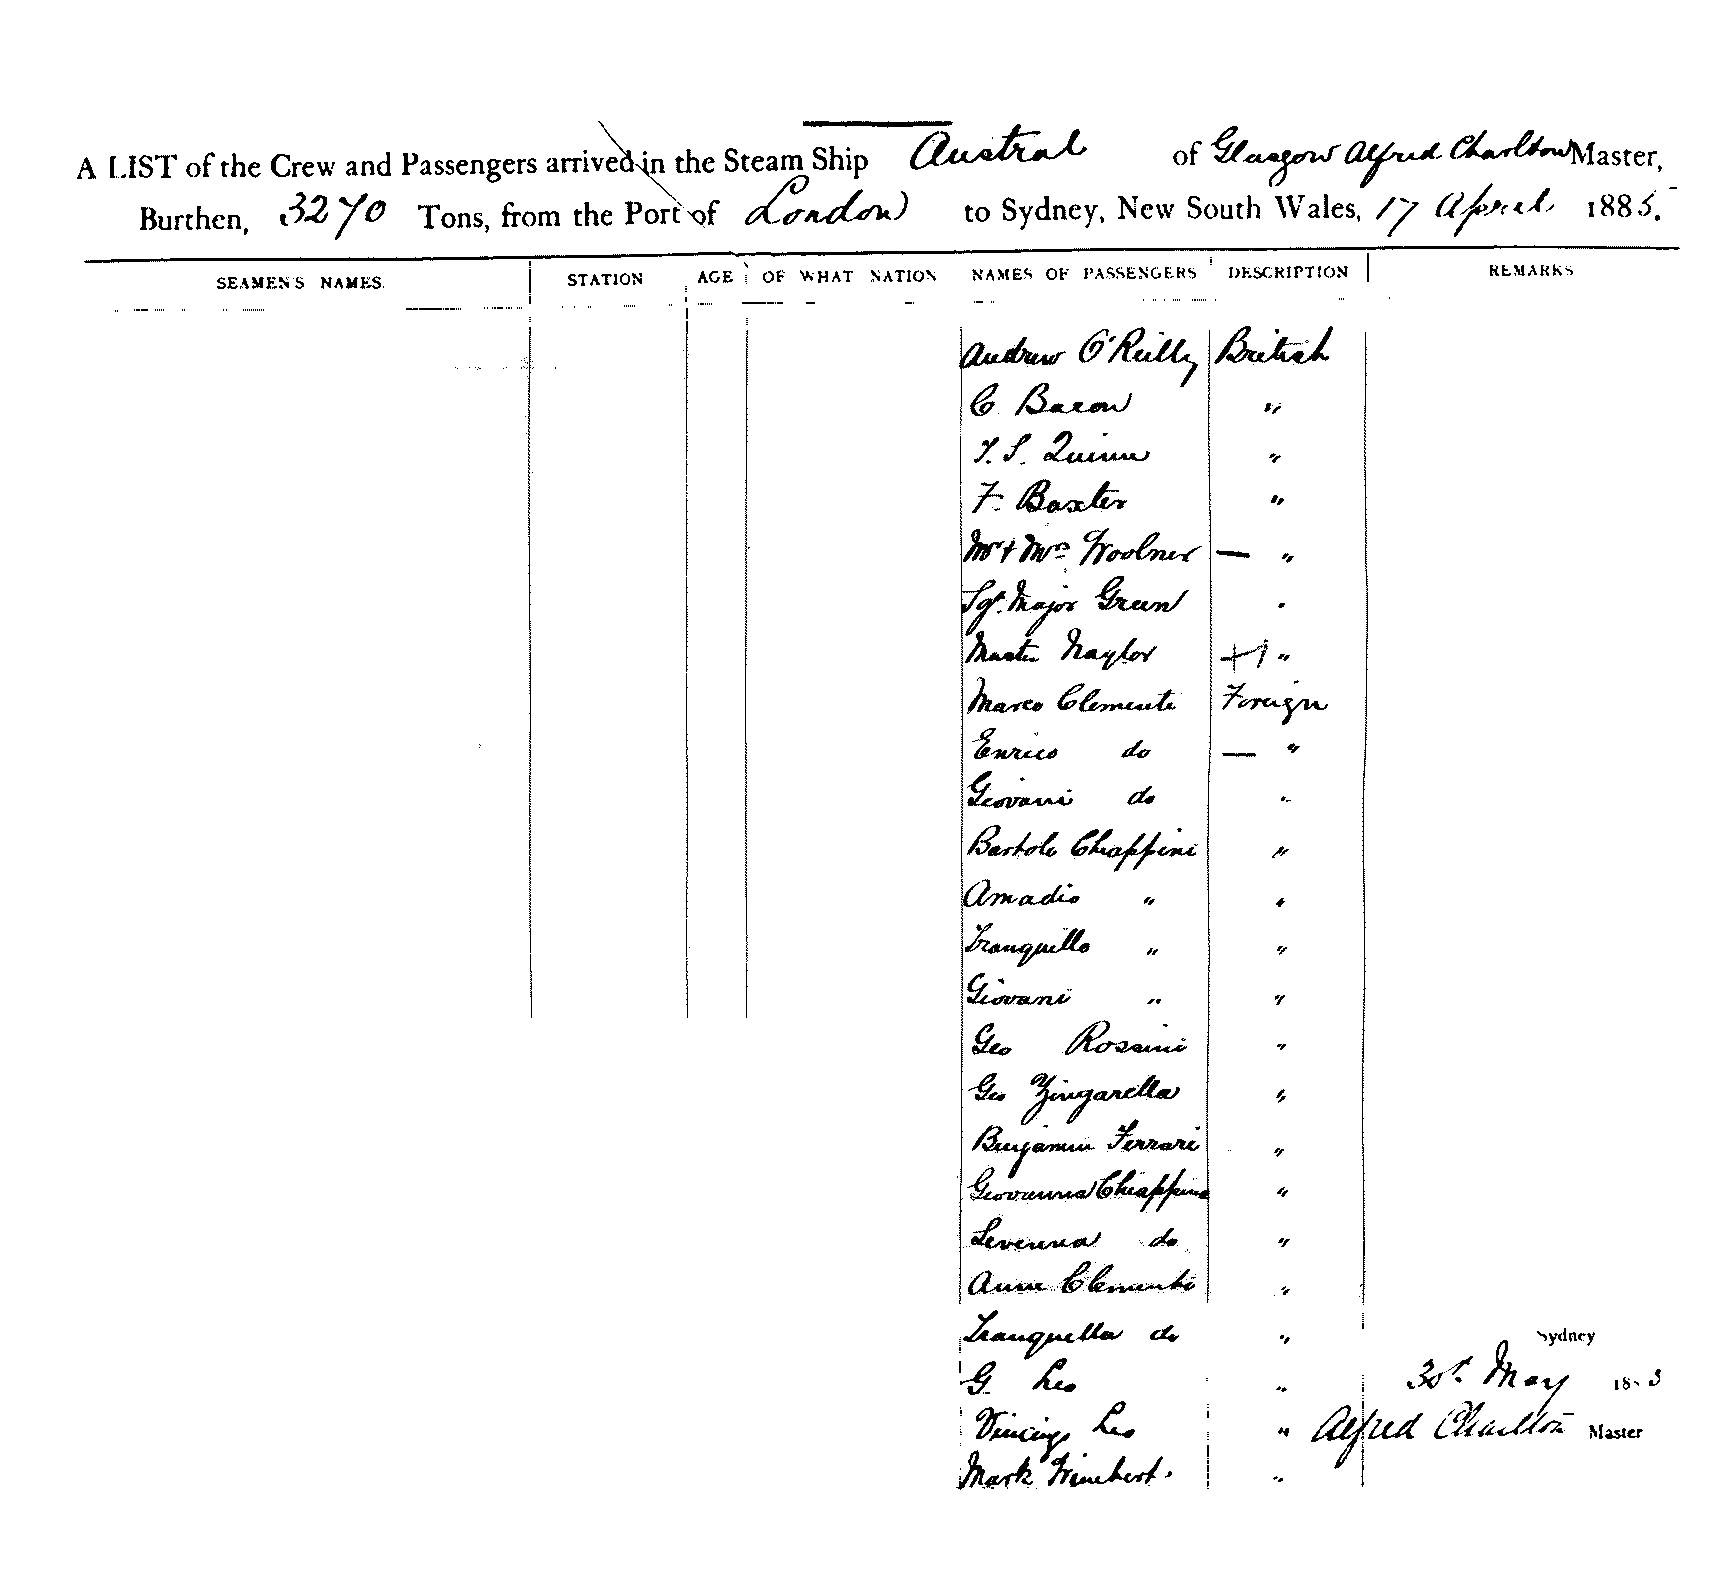 A LIST of the Crew and Passengers arrived in the Steam Ship Austral of Glasgow Alfred Charlton Master,
Burthen, 3270 Tons, from the Port of London to Sydney, New South Wales, 17 April 1885.
SEAMEN'S NAMES. STATION AGE OF WHAT NATION NAMES OF PASSENGERS DESCRIPTION REMARKS
Andrew O'Reilly British
C Bacon "
T. S. Quinn "
F. Baxter "
Mr & Mrs Woolner — "
Sgt. Major Green "
Master Naylor "
Marco Clemente Foreign
Enrico do — "
Giovani do "
Bartolo Chiappini "
Amadio " "
Tranquillo " "
Giovani " "
Geo Rossini "
Geo Zingarella "
Benjamin Ferrari "
Giovanna Chiappini "
Levenna do "
Anna Clemente "
Tranquella do "
Sydney
G. Leo "
30th May 188
Leo "
Alfred Charlton Master
Mark "